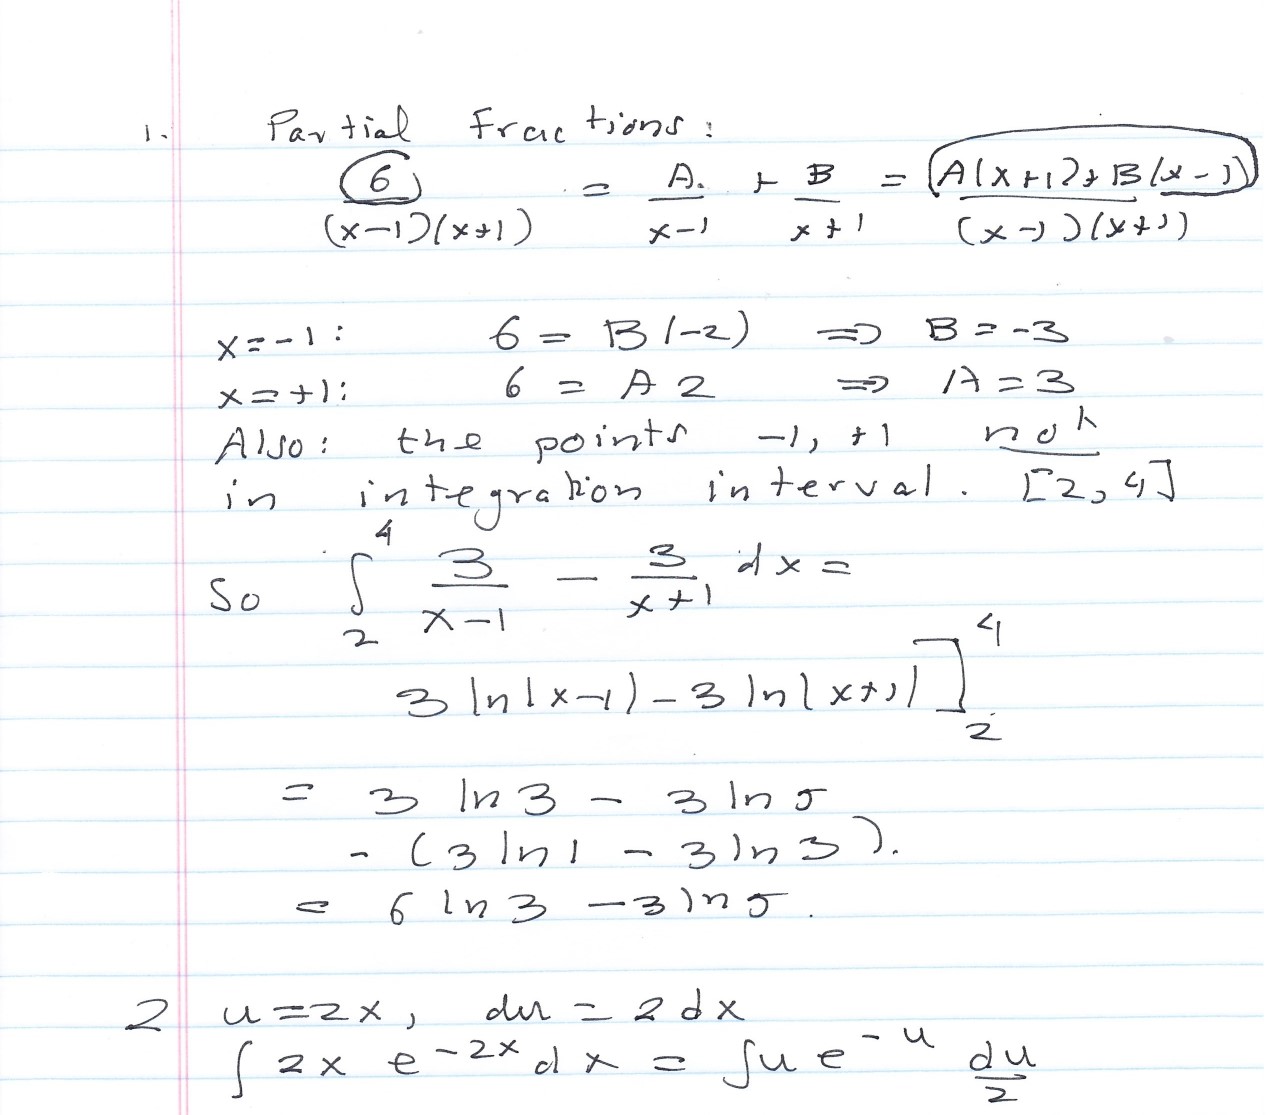 1. Partial Fractions:
6/((x-1)(x+1)) = A/(x-1) + B/(x+1) = (A(x+1)+B(x-1))/((x-1)(x+1))
x=-1: 6 = B(-2) ⇒ B=-3
x=+1: 6 = A2 ⇒ A=3
Also: the points -1, +1 not
in integration interval. [2,4]
So ∫₂⁴ 3/(x-1) - 3/(x+1) dx =
3 ln|x-1| - 3 ln|x+1| ]₂⁴
= 3 ln 3 - 3 ln 5
- (3 ln 1 - 3 ln 3).
= 6 ln 3 - 3 ln 5.
2 u=2x, du = 2dx
∫ 2x e^(-2x) dx = ∫u e^(-u) du/2